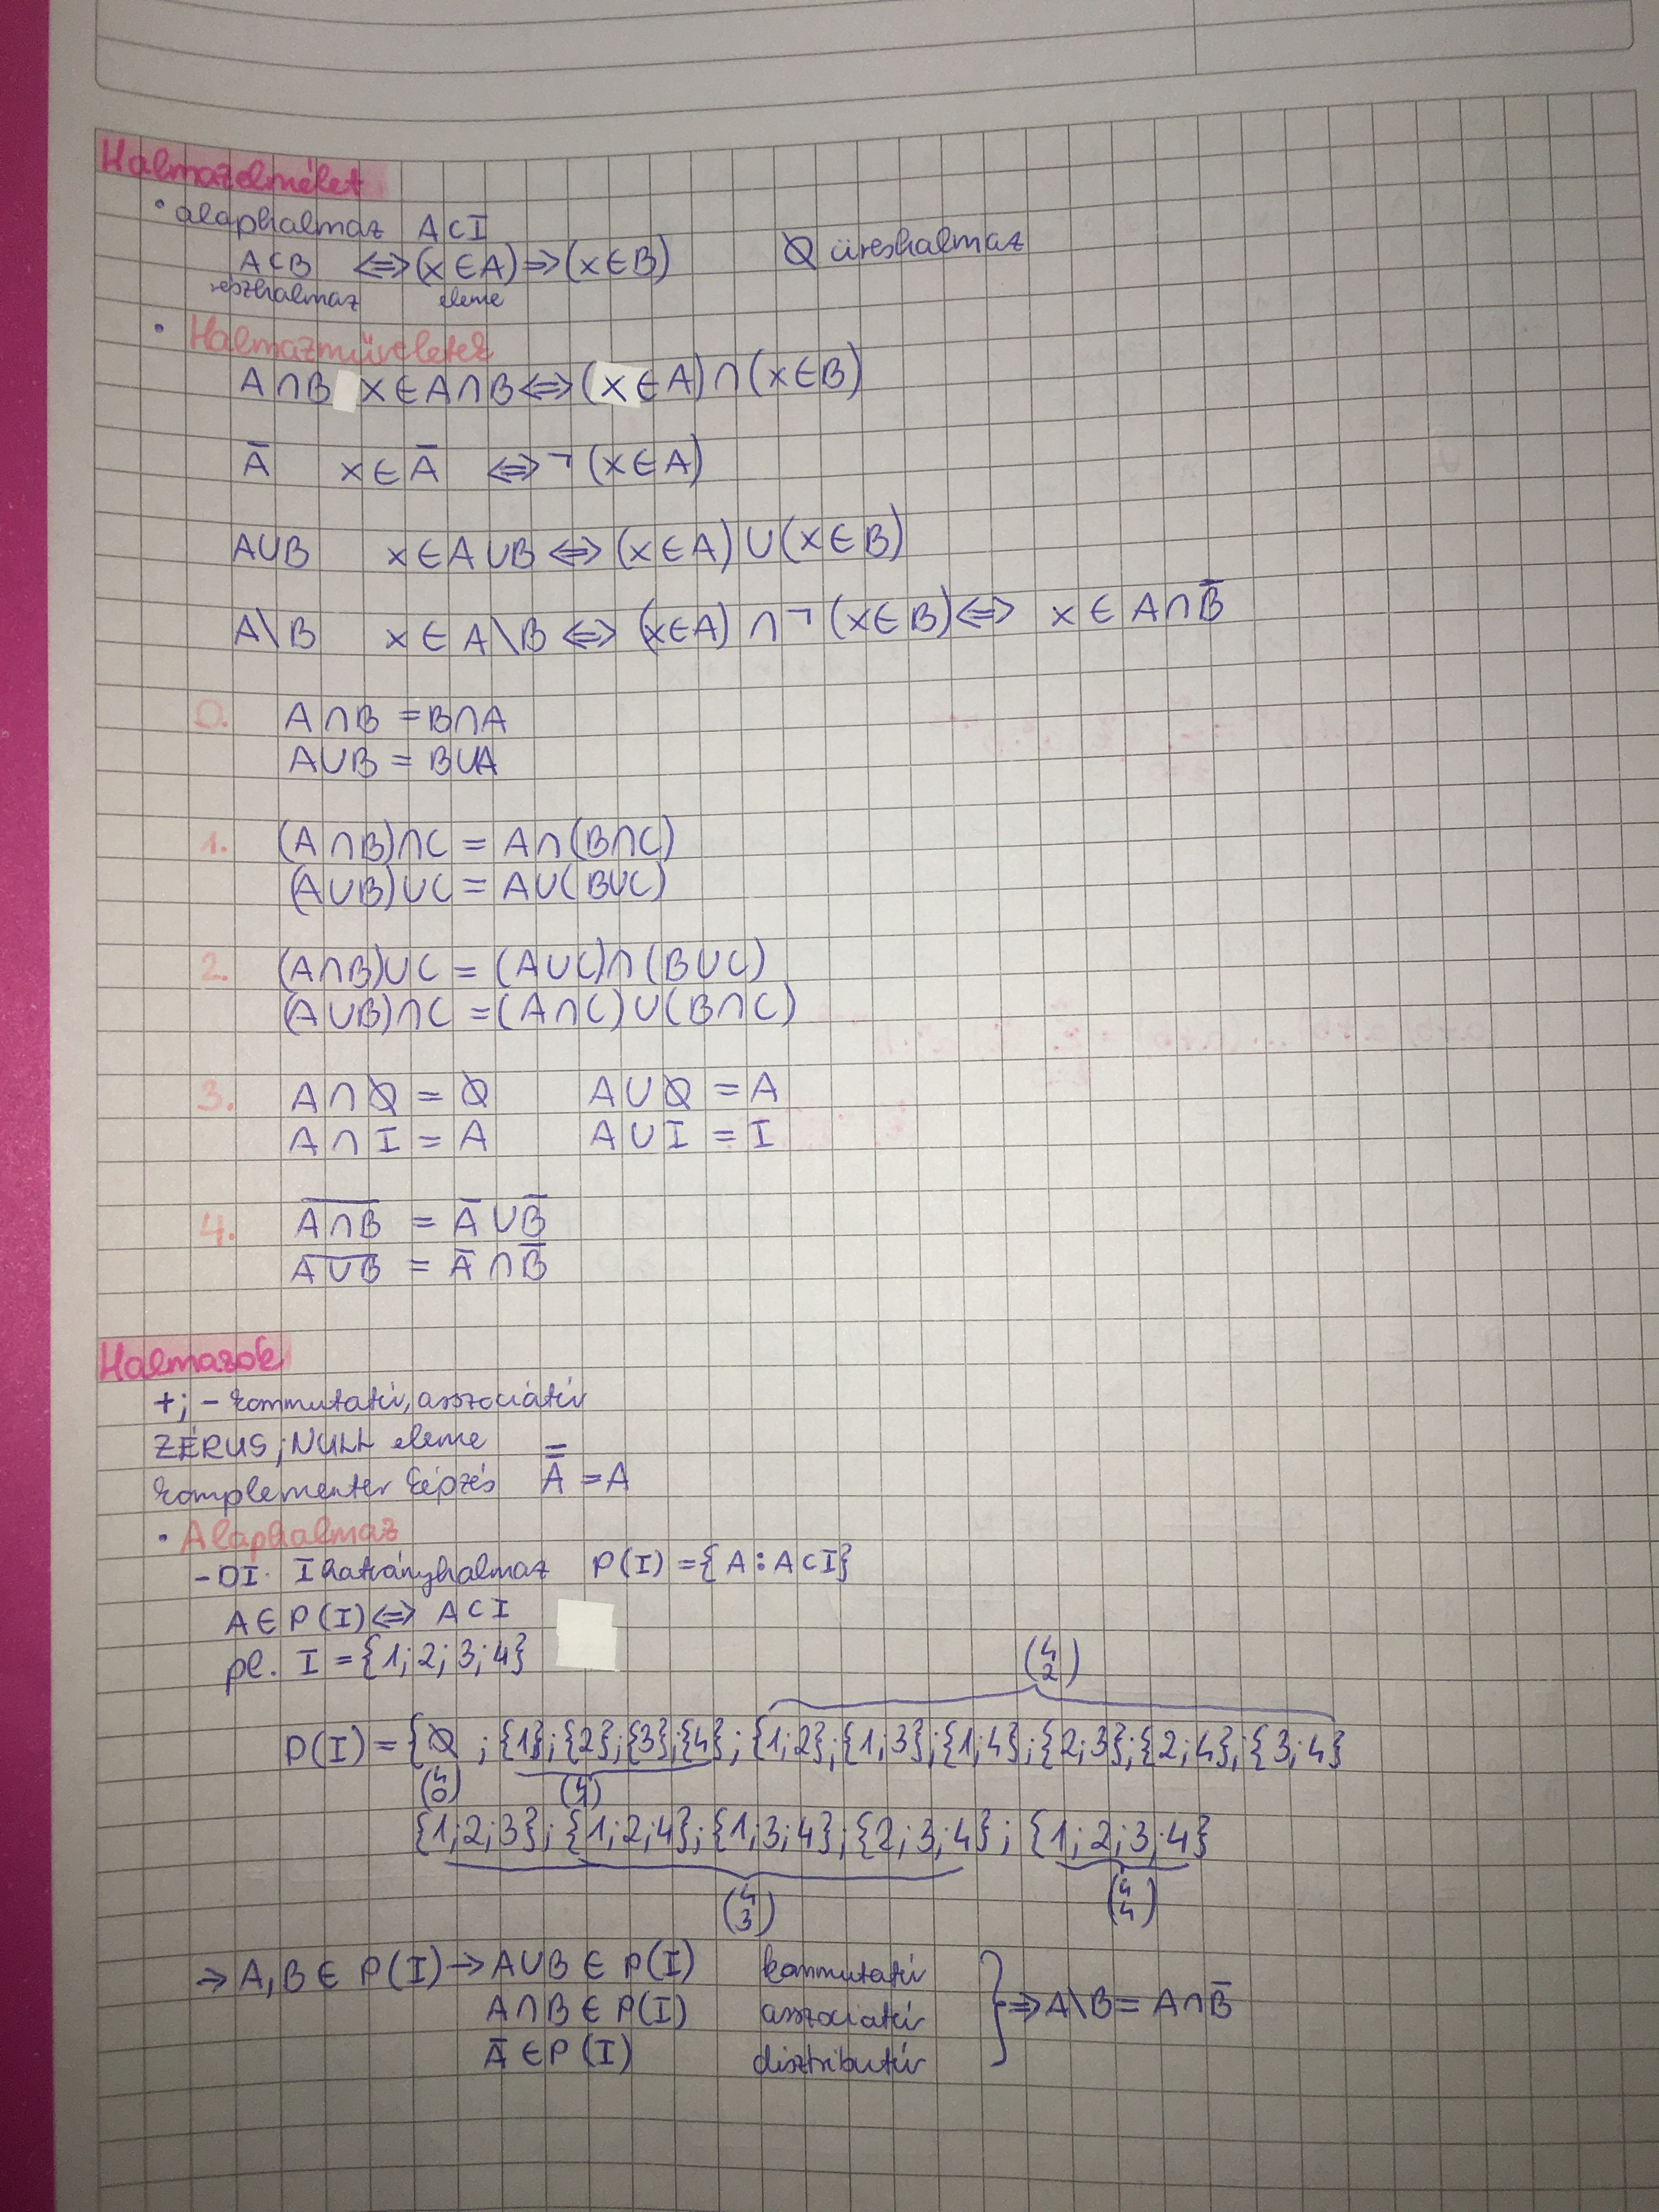 Halmazelmélet
• alaphalmaz A⊂I
A⊂B ⇔ (x∈A) ⇒ (x∈B) Ø üreshalmaz
részhalmaz eleme
• Halmazműveletek
A∩B x∈A∩B ⇔ (x∈A) ∩ (x∈B)
A̅ x∈A̅ ⇔ ¬(x∈A)
A∪B x∈A∪B ⇔ (x∈A) ∪ (x∈B)
A\B x∈A\B ⇔ (x∈A) ∩ ¬(x∈B) ⇔ x∈A∩B̅
0. A∩B = B∩A
A∪B = B∪A
1. (A∩B)∩C = A∩(B∩C)
(A∪B)∪C = A∪(B∪C)
2. (A∩B)∪C = (A∪C)∩(B∪C)
(A∪B)∩C = (A∩C)∪(B∩C)
3. A∩Ø = Ø A∪Ø = A
A∩I = A A∪I = I
4. A̅∩̅B̅ = A̅∪B̅
A̅∪̅B̅ = A̅∩B̅
Halmazok
+; - kommutatív, asszociatív
ZÉRUS; NULL eleme
komplementer képzés A̿ = A
• Alaphalmaz
- DI. I hatványhalmaz P(I) = {A : A⊂I}
A∈P(I) ⇔ A⊂I
pl. I = {1; 2; 3; 4}
(4 2)
P(I) = {Ø ; {1}; {2}; {3}; {4}; {1; 2}; {1; 3}; {1; 4}; {2; 3}; {2; 4}; {3; 4}
(4 0) (4 1)
{1; 2; 3}; {1; 2; 4}; {1; 3; 4}; {2; 3; 4}; {1; 2; 3; 4}
(4 3) (4 4)
⇒ A, B ∈ P(I) → A∪B ∈ P(I) kommutatív
A∩B ∈ P(I) asszociatív } ⇒ A\B = A∩B̅
A̅ ∈ P(I) disztributív